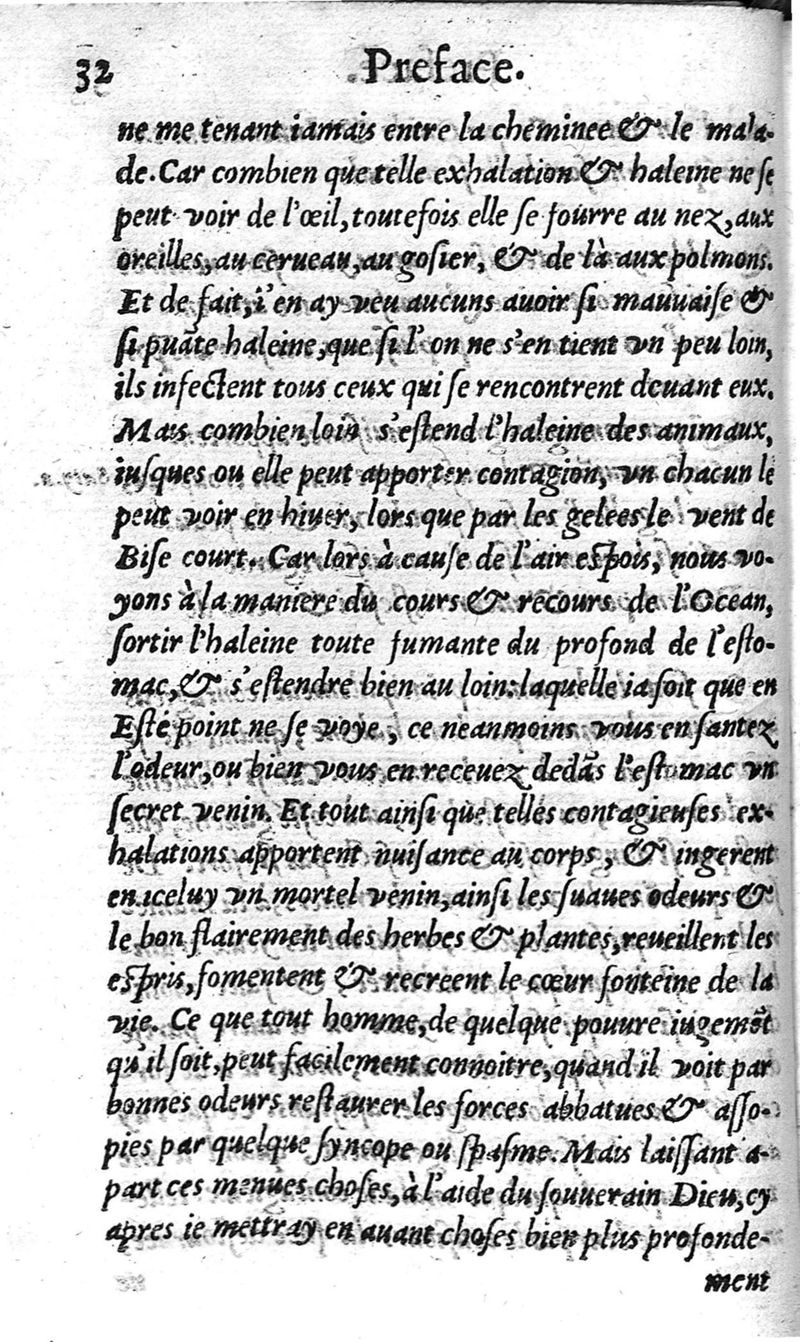 32 Preface.
ne me tenant iamais entre la cheminee & le mala-
de. Car combien que telle exhalation & haleine ne ſe
peut voir de l'œil, toutefois elle ſe fourre au nez, aux
oreilles, au cerueau, au goſier, & de là aux polmons.
Et de fait, i'en ay veu aucuns auoir ſi mauuaiſe &
ſi puāte haleine, que ſi l'on ne s'en tient vn peu loin,
ils infectent tous ceux qui ſe rencontrent deuant eux.
Mais combien loin s'eſtend l'haleine des animaux,
iuſques ou elle peut apporter contagion, vn chacun le
peut voir en hiuer, lors que par les gelees le vent de
Biſe court. Car lors à cauſe de l'air eſpois, nous vo-
yons à la maniere du cours & recours de l'Ocean,
ſortir l'haleine toute fumante du profond de l'eſto-
mac, & s'eſtendre bien au loin: laquelle ia ſoit que en
Eſté point ne ſe voye, ce neanmoins vous en ſantez
l'odeur, ou bien vous en receuez dedās l'eſtomac vn
ſecret venin. Et tout ainſi que telles contagieuſes ex-
halations apportent nuiſance au corps, & ingerent
en iceluy vn mortel venin, ainſi les ſuaues odeurs &
le bon flairement des herbes & plantes, reueillent les
eſpris, fomentent & recreent le cœur fonteine de la
vie. Ce que tout homme, de quelque pouure iugemēt
qu'il ſoit, peut facilement connoitre, quand il voit par
bonnes odeurs reſtaurer les forces abbatues & aſſo-
pies par quelque ſyncope ou ſpaſme. Mais laiſſant a-
part ces menues choſes, à l'aide du ſouuerain Dieu, cy
apres ie mettray en auant choſes bien plus profonde-
ment